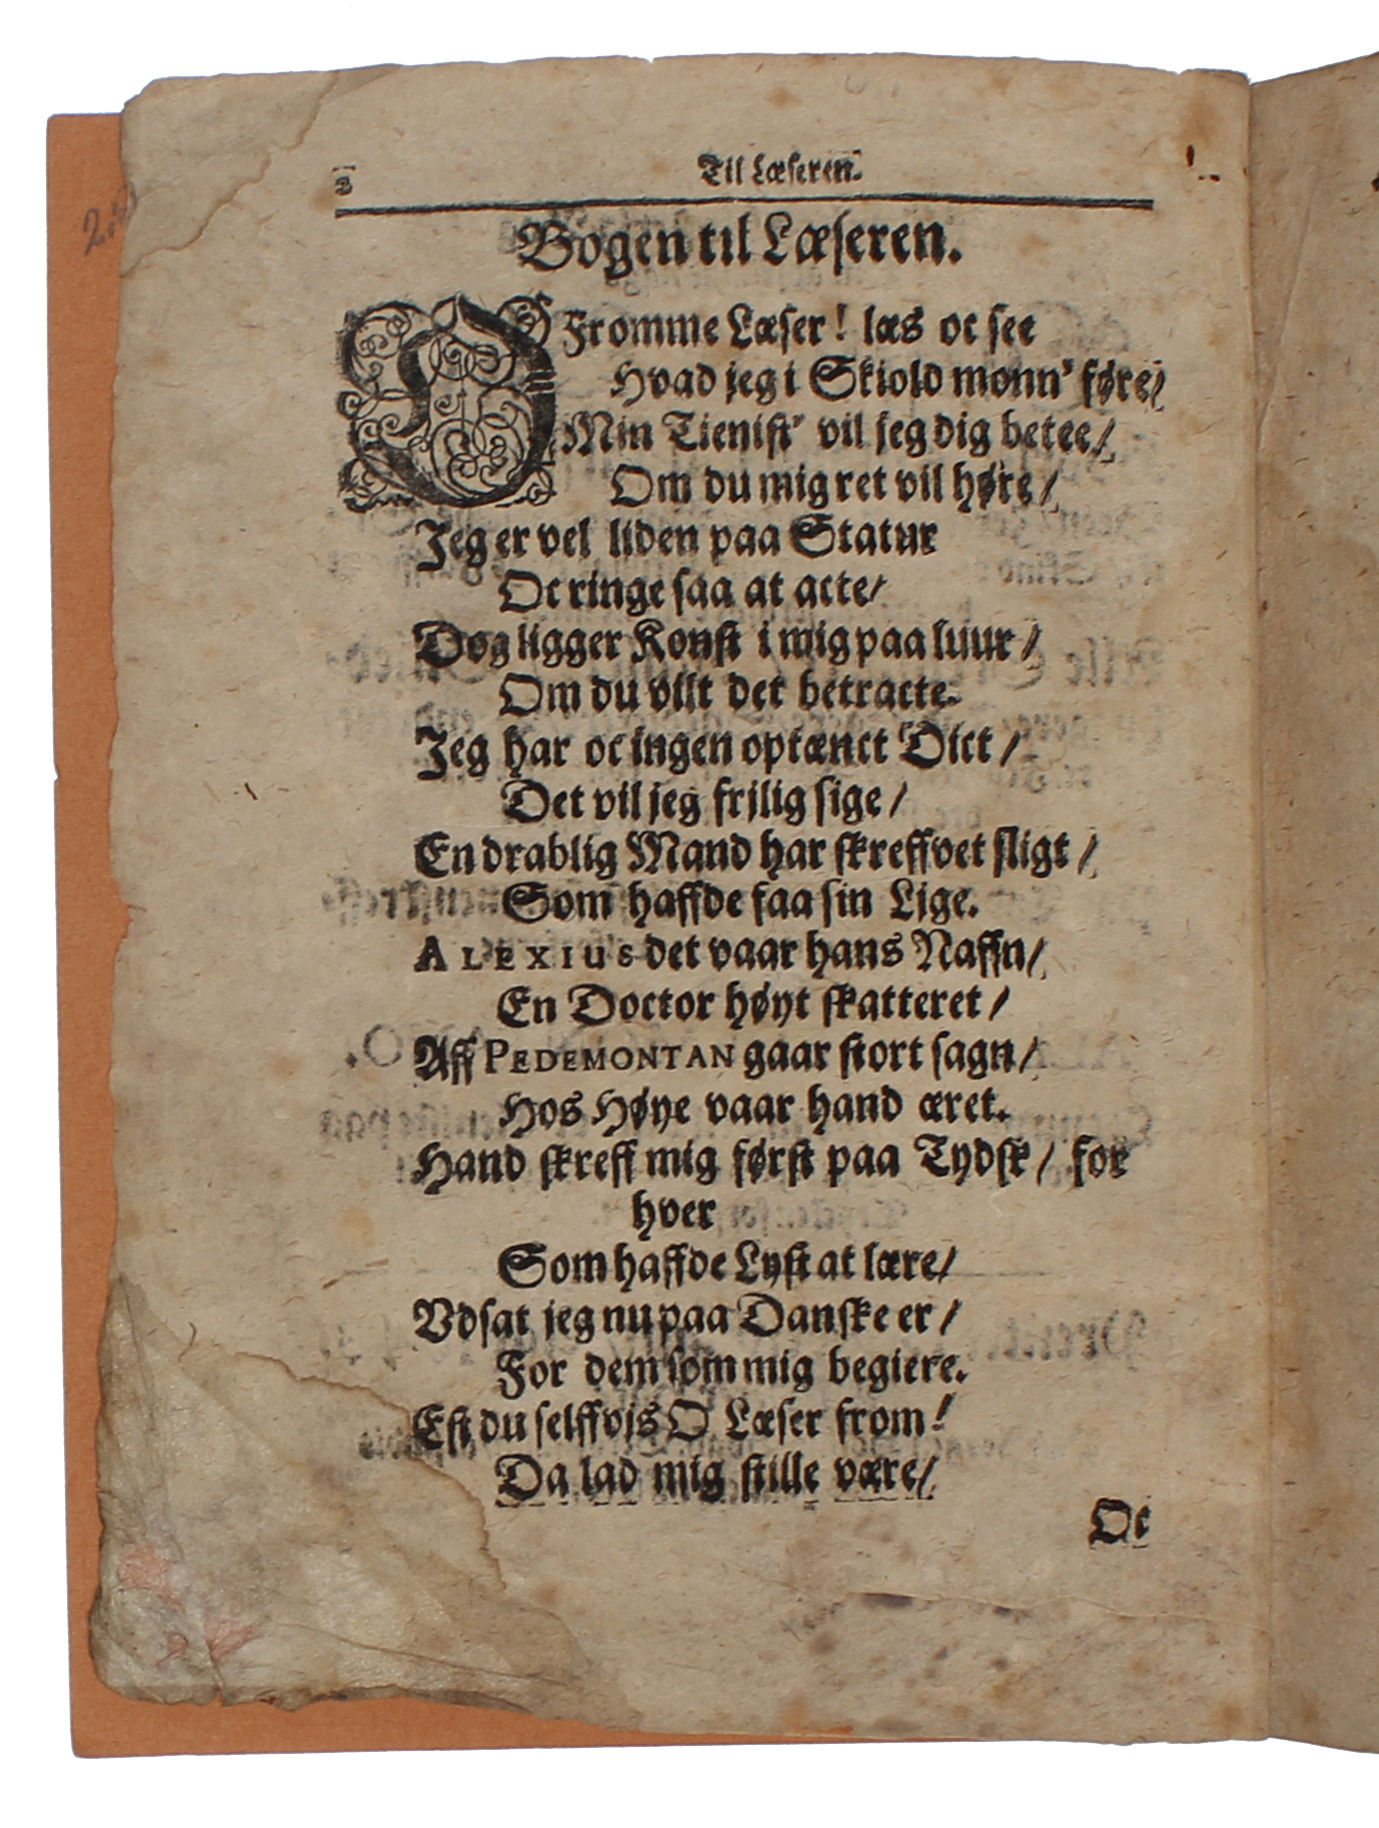 2
Til Læseren.
Bogen til Læseren.
O Fromme Læser! læs oc see
Hvad jeg i Skiold monn' føre/
Min Tienist' vil jeg dig betee/
Om du mig ret vil høre/
Jeg er vel liden paa Statur
Oc ringe saa at acte/
Dog ligger Konst i mig paa luur/
Om du vilt det betracte.
Jeg har oc ingen optænct Dict/
Det vil jeg frjlig sige/
En drablig Mand har skreffvet sligt/
Som haffde faa sin Lige.
ALEXIUS det vaar hans Naffn/
En Doctor høyt skatteret/
Aff PEDEMONTAN gaar stort sagn/
Hos Høye vaar hand æret.
Hand skreff mig først paa Tydsk/ for
hver
Som haffde Lyst at lære/
Vdsat jeg nu paa Danske er/
For dem som mig begiere.
Est du selff vjs O Læser from!
Da lad mig stille være/
Oc